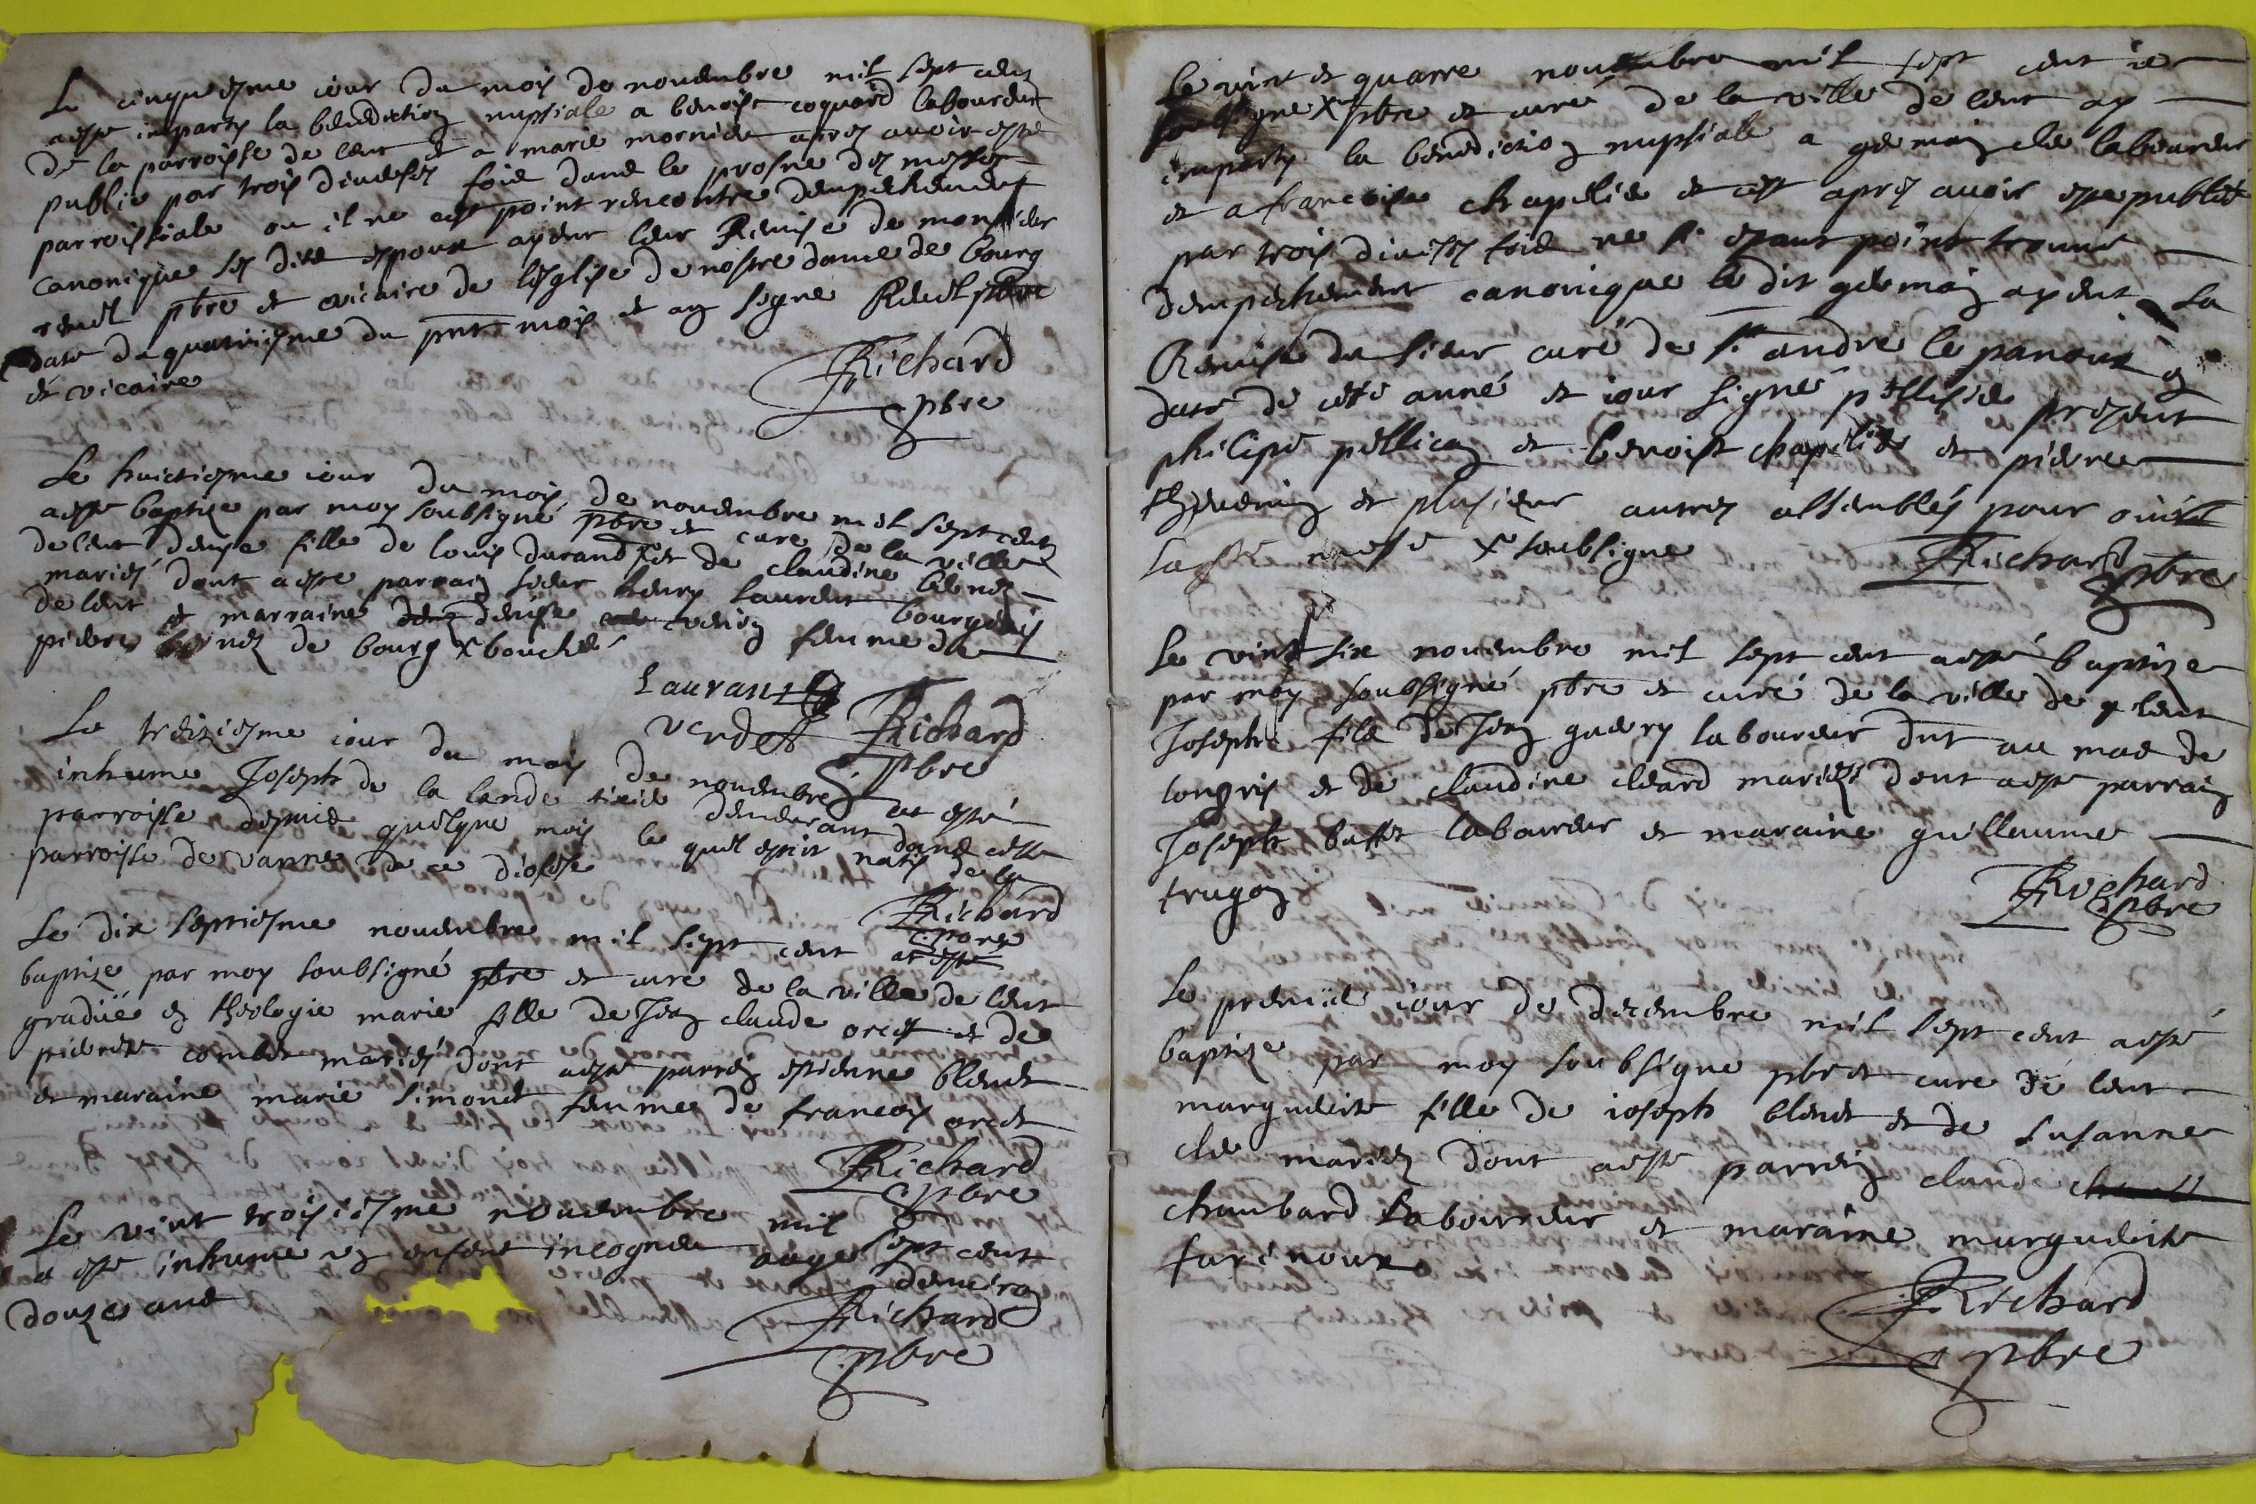 Le cinquiesme iour du mois de novembre mil sept cent
a esté imparty la benediction nuptiale a benoist coquard laboureur
de la parroisse de lent et a marie mornieu apres avoir esté
publié par trois diverses fois dans le prosne des messes
parroissiale ou il ne cest point rencontré dempechement
canonique les dits espoux ayent leur Remise de monsieur
revel pbre et vicaire de leglise de nostre dame de bourg
daté du quatriesme du pnt mois et an signé Revel pbre
et vicaire
Richard
pbre
Le huictiesme iour du mois de novembre mil sept cent
a esté baptize par moy soubsigné pbre et curé de la ville
de lent denise fille de louis durand et de claudine
mariés dont a esté parrain sieur henry laurent bourgeois
de lent et marraine denise femme de
pierre de bourg boucher
Laurant
verdet Richard
pbre
Le treiziesme iour du mois de novembre at esté
inhumé Joseph de la lande demeurant dans cette
parroisse depuis quelque mois le quel estoit natif de la
parroise de vannes de ce diocese
Richard
pbre
Le dix septiesme novembre mil sept cent at esté
baptize par moy soubsigné pbre et curé de la ville de lent
gradué en theologie marie fille de Jean claude orcet et de
pierrette combet mariés dont a esté parrein estienne blenet
et maraine marie simonet femme de francois orcet
Richard
pbre
Le vint troisiesme novembre mil sept cent
a esté inhumé un enfent incogneu aagé denviron
douzes ans
Richard
pbre
Le vint et quatre novembre mil sept cent ie
soubsigné pbre et curé de la ville de lent ay
imparty la benediction nuptiale a germain cle laboureur
et a francoise chapelié et cest apres avoir esté publiée
par trois diverses fois ne sestant point trouvé
dempechement canonique le dit germain ayent sa
Remise du sieur curé de st andré le panoux en
date de cette année et iour signé pellisié present
philipe pellican et benoist chapelié et pierre
thevenin et plusieur autres assemblés pour ouir
la ste messe soubsigne
Richard pbre
Le vint six novembre mil sept cent a esté baptize
par moy soubsigné pbre et curé de la ville de lent
Joseph fils de Jean guery laboureur dnt au mas de
longris et de claudine cleard mariés dont a esté parrain
Joseph buffet laboureur et maraine guillaume
trugon
Richard
pbre
Le premiée iour de decembre mil sept cent a esté
baptize par moy soubsigne pbre et curé de lent
marguerite fille de ioseph blenet et de susanne
cle mariés dont a esté parrein claude
chambard laboureur et maraine marguerite
farenoux
Richard
pbre